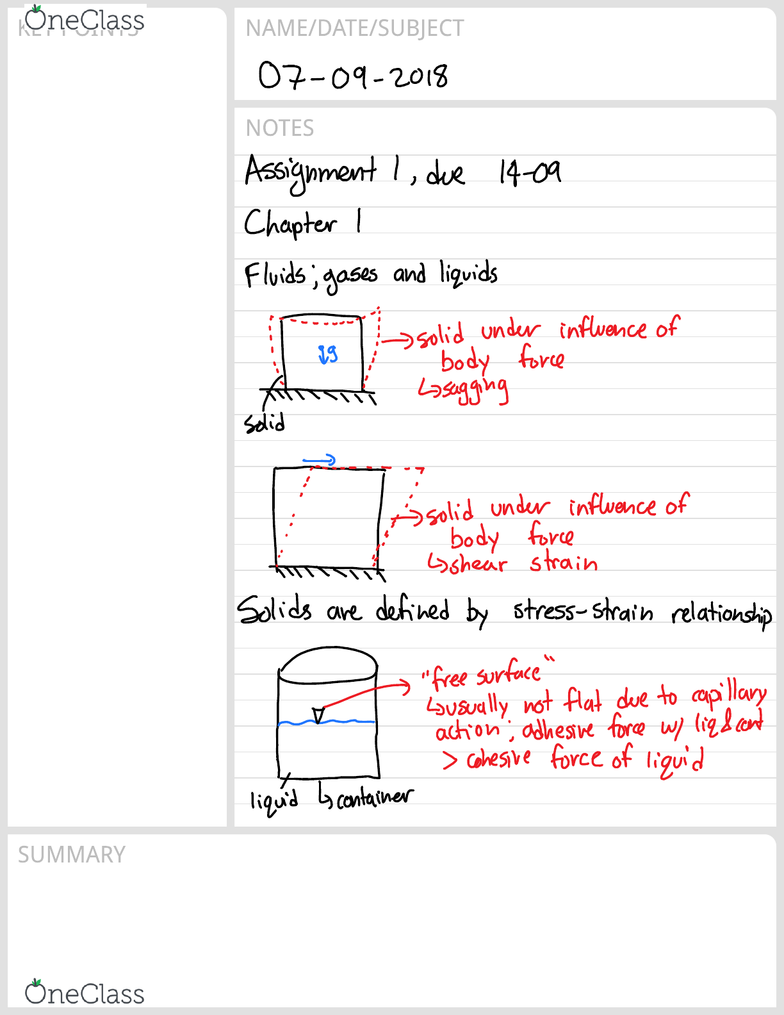 OneClass
KEY POINTS
NAME/DATE/SUBJECT
07-09-2018
NOTES
Assignment 1, due 14-09
Chapter 1
Fluids; gases and liquids
↓g
→solid under influence of
body force
↳sagging
solid
→solid under influence of
body force
↳shear strain
Solids are defined by stress-strain relationship
"free surface"
↳usually not flat due to capillary
action; adhesive force w/ liq & cont
> cohesive force of liquid
liquid ↳container
SUMMARY
OneClass